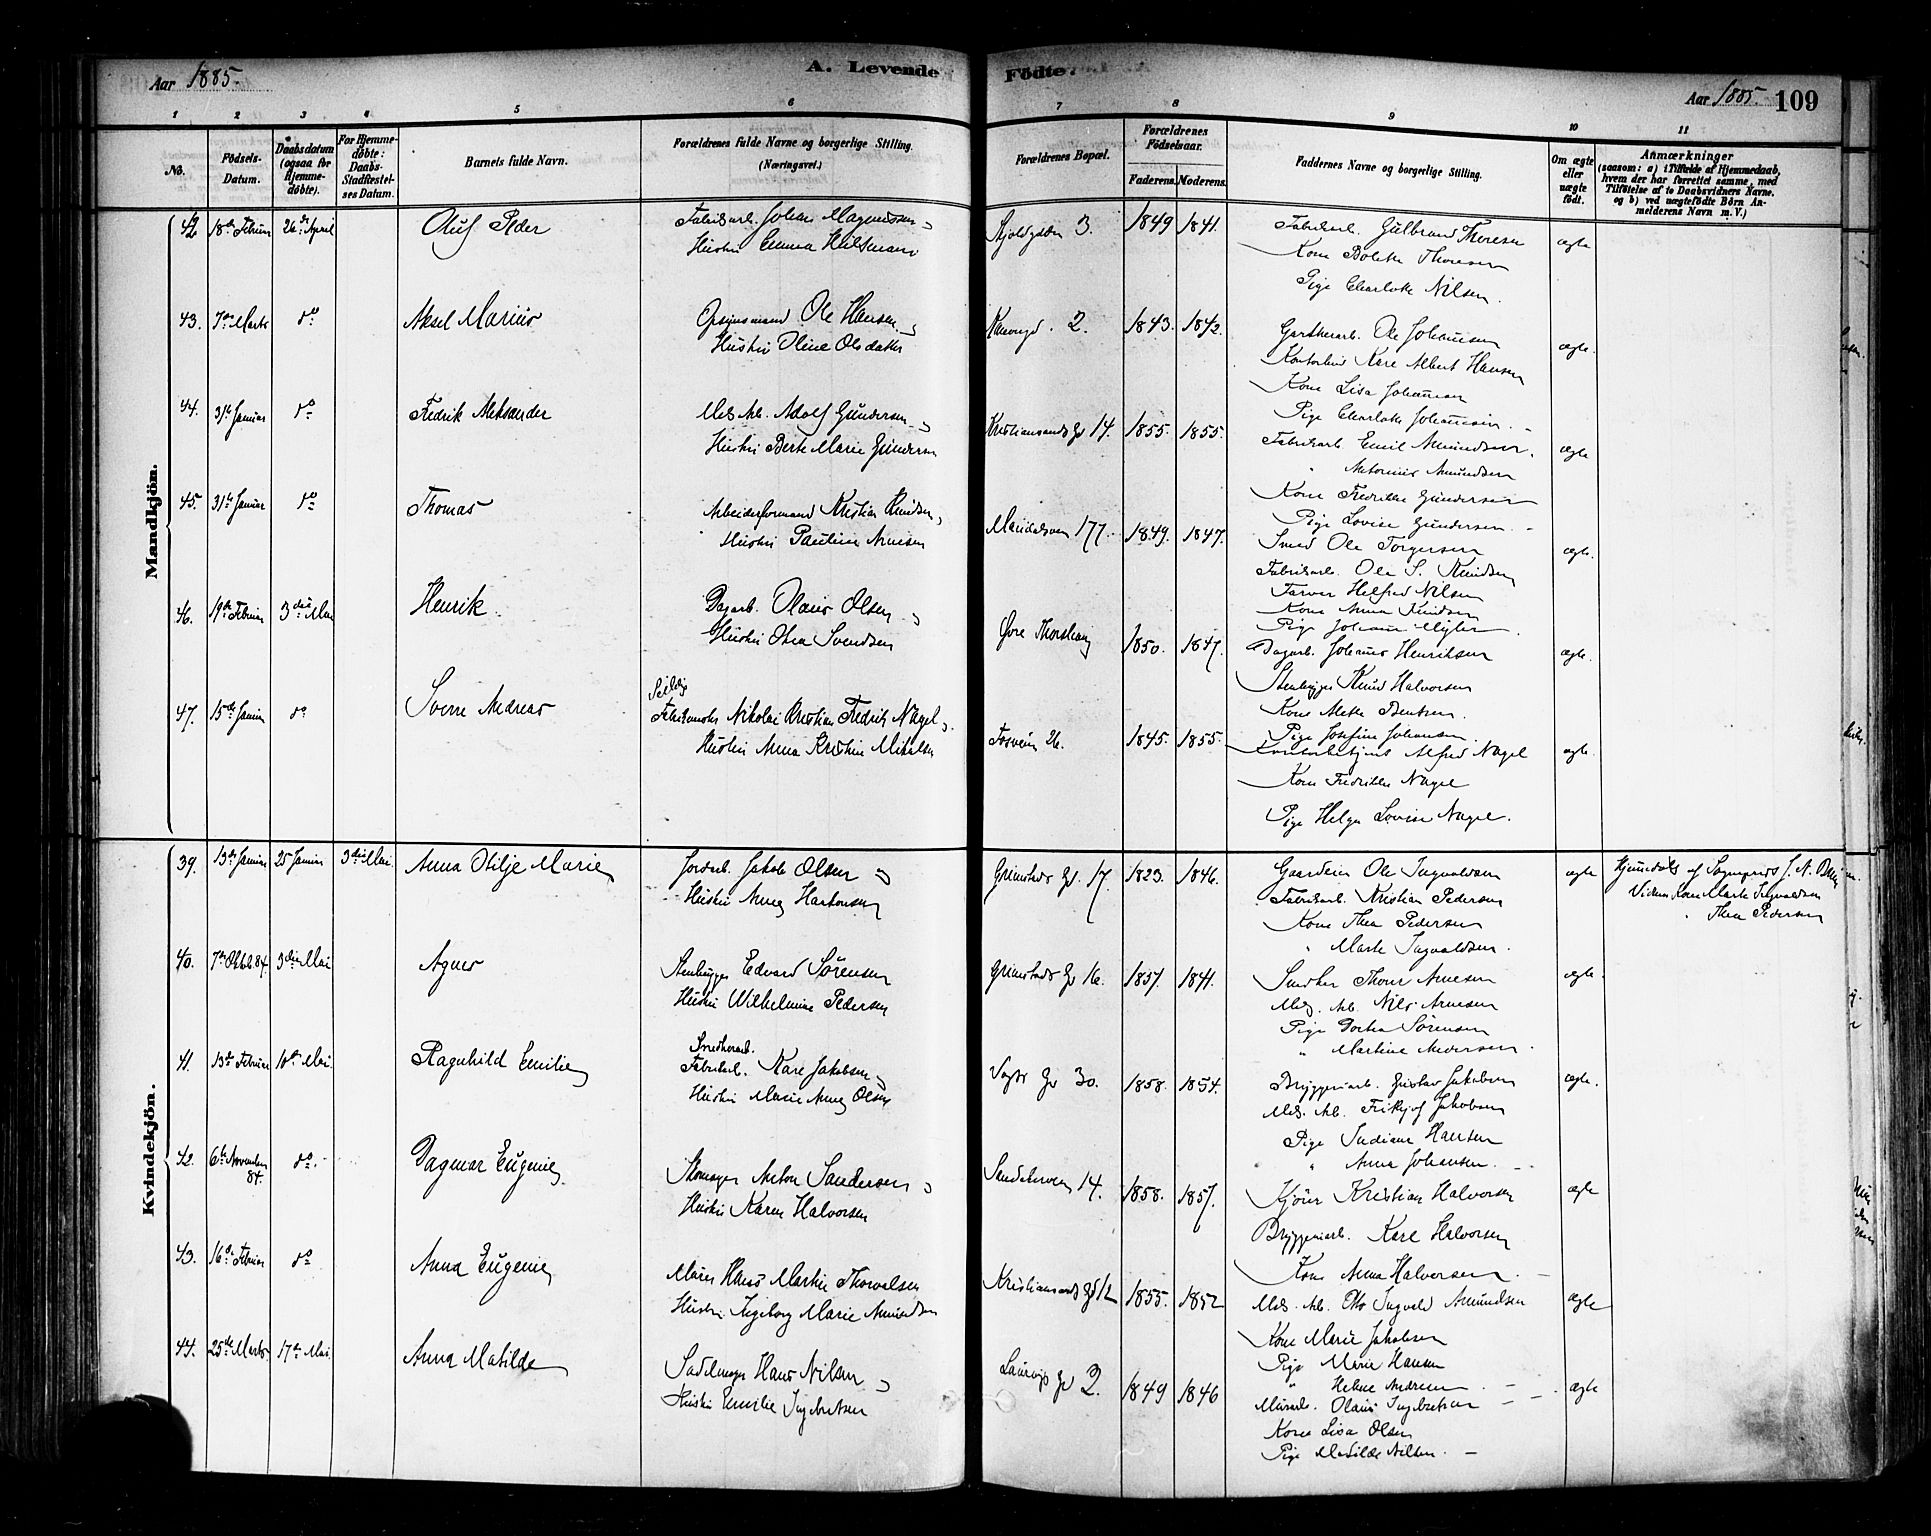 Aar 1885.
A. Levende Födte.
Aar 1885. 109
1 2 3 4 5 6 7 8 9 10 11
No.
Födsels-Datum.
Daabsdatum (ogsaa for Hjemmedöbte).
For Hjemmedöbte: Daabs-Stadfæstelses Datum.
Barnets fulde Navn.
Forældrenes fulde Navne og borgerlige Stilling.
(Næringsvei.)
Forældrenes Bopæl.
Forældrenes Födselsaar.
Faderens. Moderens.
Faddernes Navne og borgerlige Stilling.
Om ægte eller uægte födt.
Anmærkninger
(saasom: a) i Tilfælde af Hjemmedaab, hvem der har forrettet samme, med Tilföielse af to Daabsvidners Navne, og b) ved uægtefödte Börn Anmelderens Navn m. V.)
Mandkjön.
42 18de Februar 26de April Oluf Peder
Fabrikarb. Johan Magnussen
Hustru Emma
3. 1849 1841.
Fabrikarb. Gulbrand Thoresen
Kone Bolette Thoresen
Pige Charlotte Nilsen.
ægte
43. 7de Marts do Aksel Marius
Opsynsmand Ole Hansen
Hustru Oline Olsdatter
2. 1843. 1842.
Ole Johansen
Karl Albert Hansen
Kone Lisa Johansen
Pige Charlotte Johansen.
ægte.
44. 31te Januar do Fredrik Aleksander
Mek. Arb. Adolf Gundersen
Hustru Berte Marie Gundersen
Kristiansands Gd 14. 1855. 1855.
Fabrikarb. Emil Amundsen.
" Antonius Amundsen
Kone Fredrikke Gundersen
Pige Lovise Gundersen.
ægte
45. 31te Januar do Thomas
Arbeiderformand Kristian Knudsen,
Hustru Pauline Arnesen
Maridalsveien 177. 1849. 1847.
Smed Ole Torgersen
Fabrikarb. Ole S. Knudsen
Farver Helfred Nilsen
Kone Anna Knudsen
Pige
ægte.
46. 19de Februar 3die Mai Henrik.
Dagarb. Olaus Olsen
Hustru Svendsen
Øvre 1850. 1847.
Dagarb. Johannes Henriksen
Stenhugger Knud Halvorsen
Kone Mette Bentsen.
Pige Josefine Johansen.
ægte.
47. 15de Januar do Sverre Andreas
Nikolai Kristian Fredrik Nagel
Hustru Anna Kristine Mikalsen
Fosveien 26. 1845. 1855.
Alfred Nagel
Kone Fredrikke Nagel
Pige Helga Lovise Nagel.
ægte.
Kvindekjön.
39. 13de Januar 25 Januar 3die Mai. Anna Otilje Marie
Jordarb. Jakob Olsen
Hustru Anna
Grimstads Gd. 17. 1823. 1846.
Gaardeier Ole Ingvaldsen
Fabrikarb. Kristian Pedersen
Kone Thea Pedersen
" Marte Ingvaldsen.
ægte
Hjemdøbt af Sognepræst J. A. Bruun.
Vidner Kone Marte Ingvaldsen
" Thea Pedersen
40. 7de Oktob 84. 3die Mai Agnes
Stenhugger Edvard Sørensen
Hustru Wilhelmine Pedersen
Grimstads Gd 16. 1857. 1841.
Snedker Arnesen
Mek. Arb. Nils Arnesen
Pige Dorthea Sørensen
" Martine Andersen.
ægte.
41. 13de Februar 10de Mai. Ragnhild Emilie
Snedkerarb.
Fabrikarb. Karl Jakobsen
Hustru Marie Anna Olsen
Vogts Gd 30. 1858. 1854.
Bryggeriarb. Gustav Jakobsen
Mek. Arb. Frithjof Jakobsen
Pige Indiane Hansen
" Anna Johansen.
ægte.
42. 6te November 84. do. Dagmar Eugenie
Skomager Anton Sandersen
Hustru Karen Halvorsen
Sandakerveien 14. 1858. 1857.
Kristian Halvorsen
Bryggeriarb. Karl Halvorsen
Kone Anna Halvorsen.
ægte
43. 16de Februar do Anna Eugenie
Murer Hans Martin Thorvalsen
Hustru Ingeborg Marie Amundsen
Kristiansands Gd 12 1855. 1852
Mek. Arb. Otto Ingvald Amundsen
Kone Marie Jakobsen
Pige Marie Hansen
" Helene Andresen
ægte
44. 25de Marts 17de Mai. Anna Matilde
Sadelmager Hans Nilsen
Hustru Emilie Ingebretsen
Laurvigs Gd 2. 1849 1846
Murarb. Olaus Ingebretsen
Kone Lisa Olsen
Pige Matilde Nilsen.
ægte